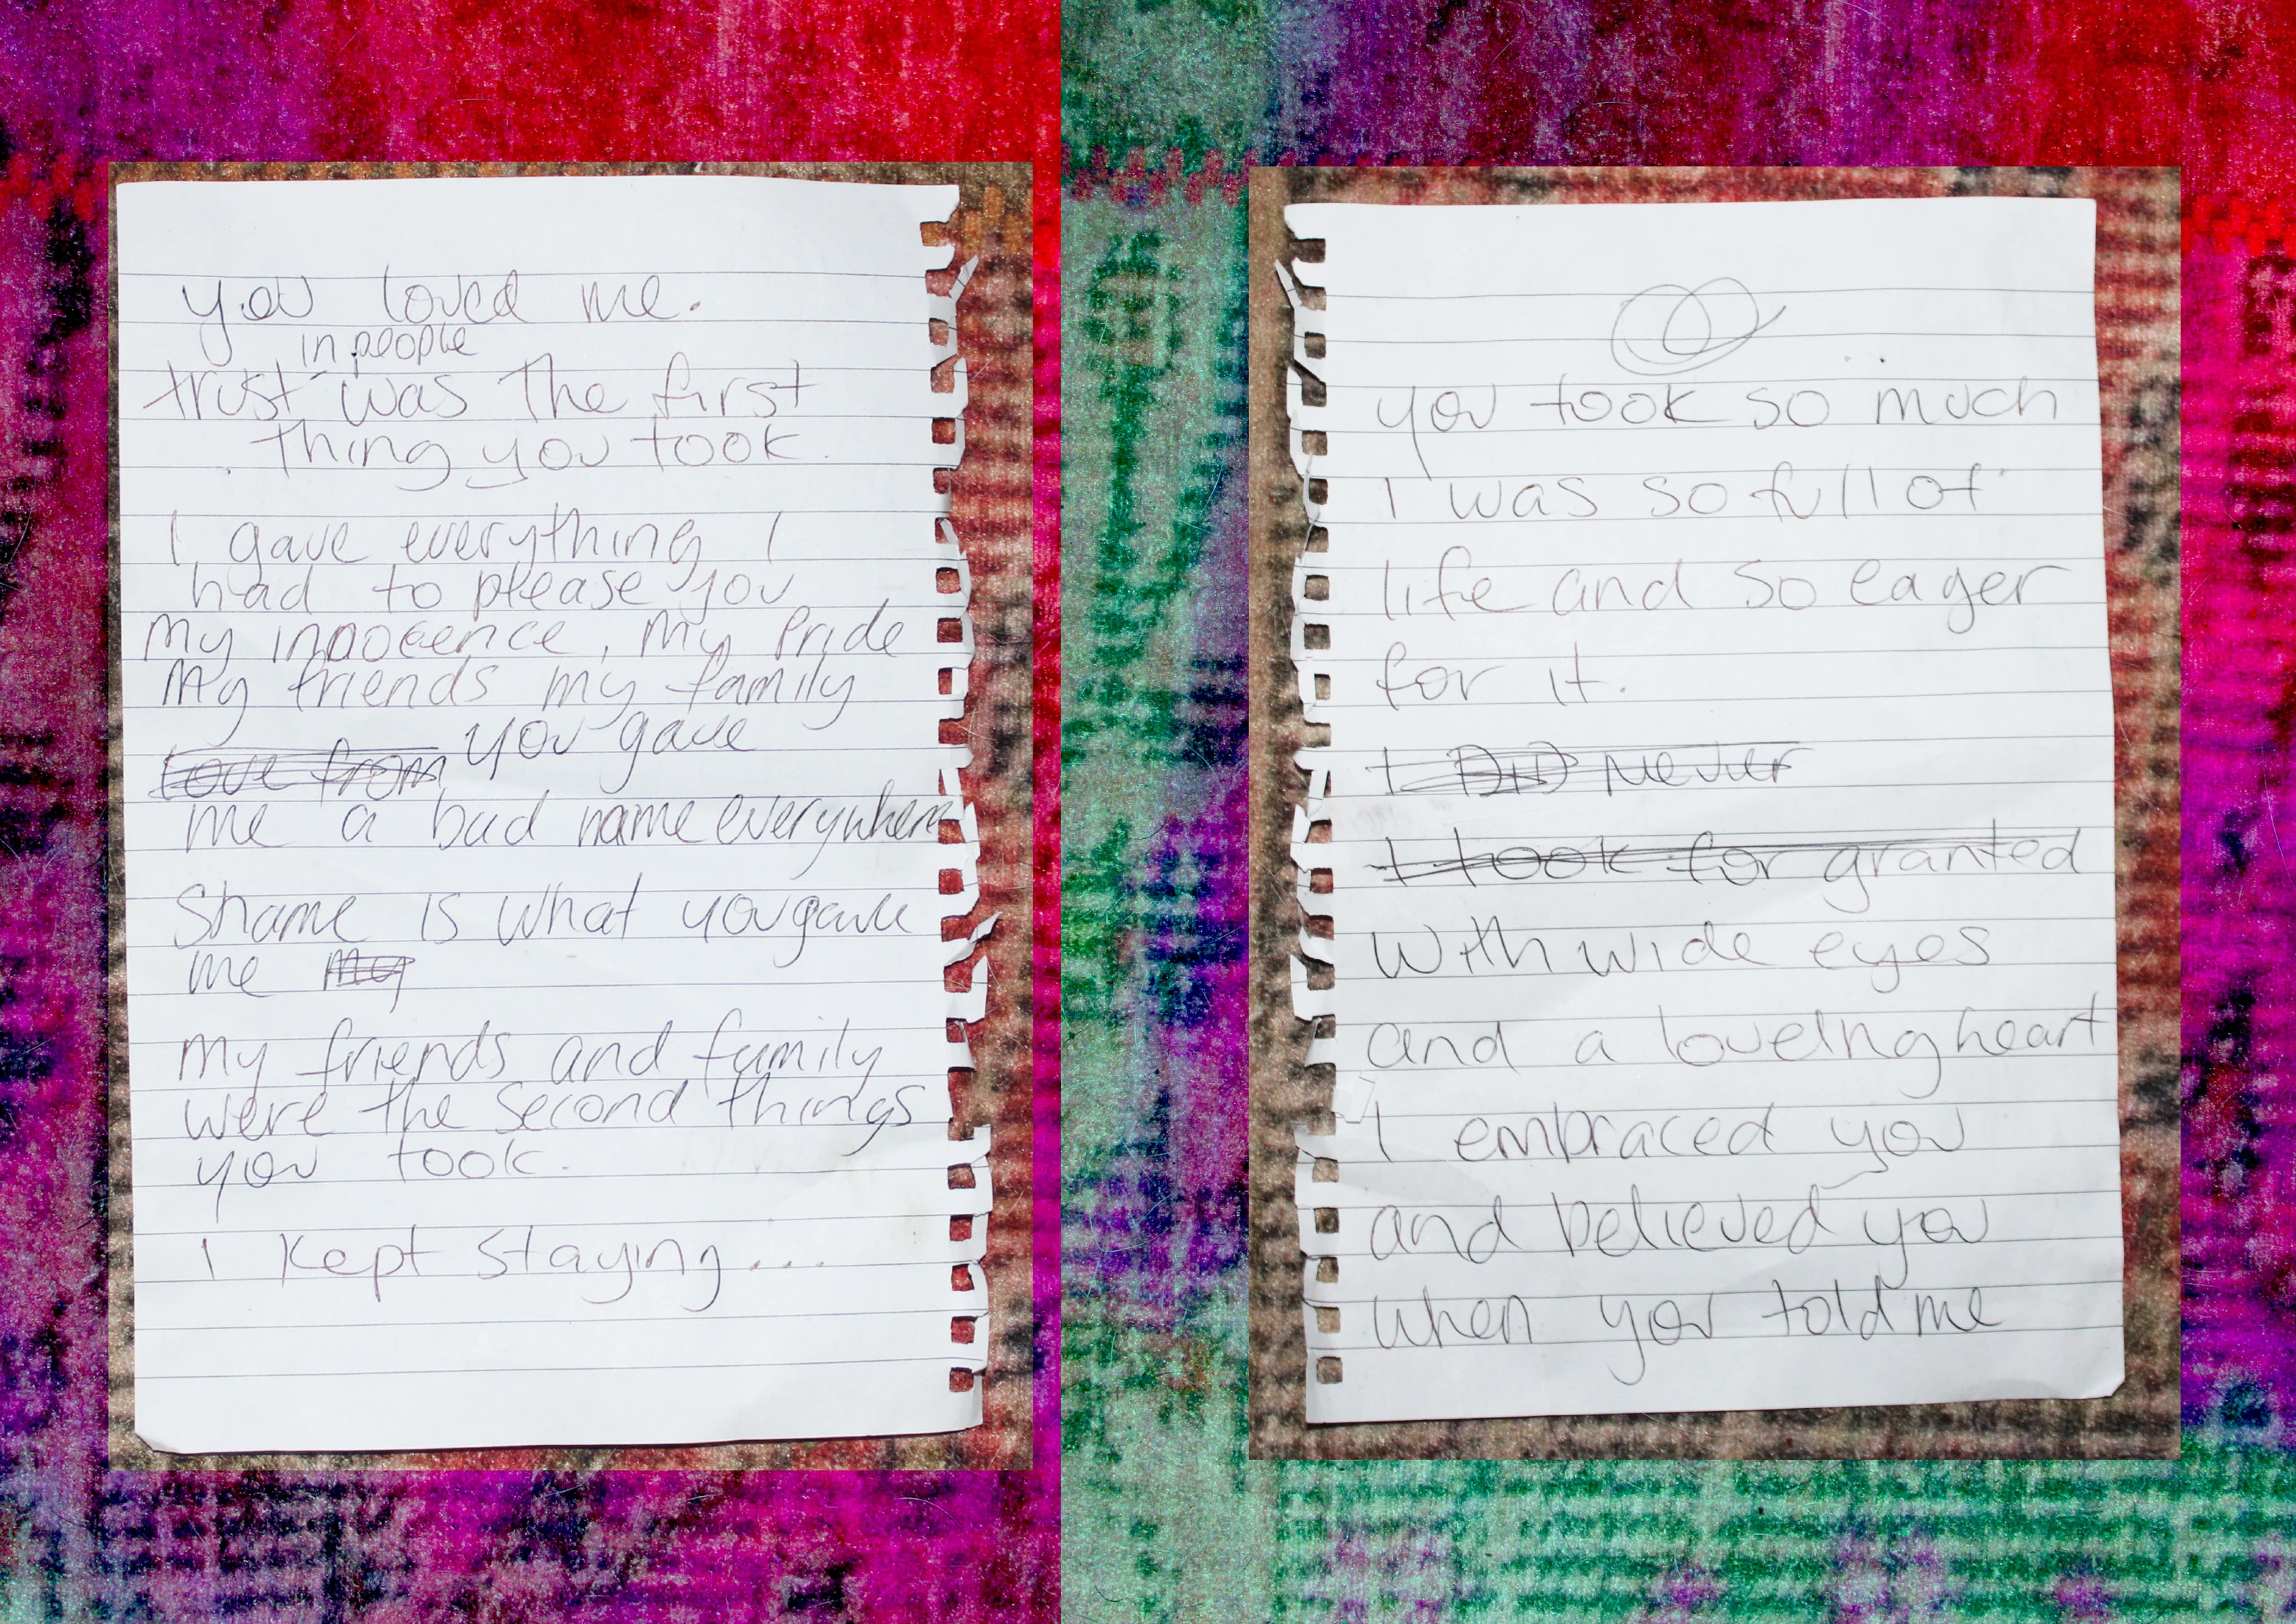 you loved me.
in people
trust was The first
thing you took.
I gave everything I
had to please you
my innocence, my Pride
My friends my family
Love from you gave
me a bad name everywhere
Shame is what you gave
me my
my friends and family
were the second things
you took.
I kept staying...
you took so much
I was so full of
life and so eager
for it.
I DID Never
I took for granted
With wide eyes
and a loveing heart
I embraced you
and believed you
when you told me